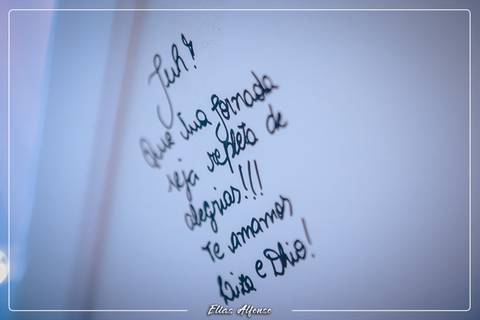 Juh!
Que sua jornada
seja repleta de
alegrias!!!
Te amamos
Laiza e Dhio!
Elias Alfonso